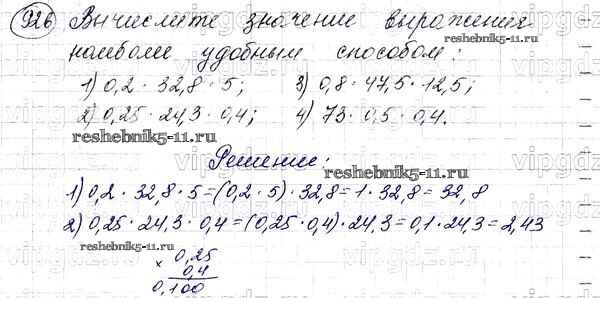 926 Вычислите значение выражения
наиболее удобным способом:
1) 0,2 · 32,8 · 5; 3) 0,8 · 47,5 · 12,5;
2) 0,25 · 24,3 · 0,4; 4) 73 · 0,5 · 0,4.
reshebnik5-11.ru
reshebnik5-11.ru
Решение:
reshebnik5-11.ru
1) 0,2 · 32,8 · 5 = (0,2 · 5) · 32,8 = 1 · 32,8 = 32,8
2) 0,25 · 24,3 · 0,4 = (0,25 · 0,4) · 24,3 = 0,1 · 24,3 = 2,43
reshebnik5-11.ru
× 0,25
0,4
0,100